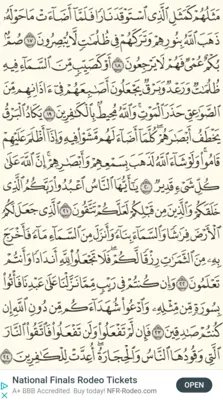 مَثَلُهُمْ كَمَثَلِ ٱلَّذِى ٱسْتَوْقَدَ نَارًا فَلَمَّآ أَضَآءَتْ مَا حَوْلَهُۥ
ذَهَبَ ٱللَّهُ بِنُورِهِمْ وَتَرَكَهُمْ فِى ظُلُمَٰتٍ لَّا يُبْصِرُونَ ١٧ صُمٌّۢ
بُكْمٌ عُمْىٌ فَهُمْ لَا يَرْجِعُونَ ١٨ أَوْ كَصَيِّبٍ مِّنَ ٱلسَّمَآءِ فِيهِ
ظُلُمَٰتٌ وَرَعْدٌ وَبَرْقٌ يَجْعَلُونَ أَصَٰبِعَهُمْ فِىٓ ءَاذَانِهِم مِّنَ
ٱلصَّوَٰعِقِ حَذَرَ ٱلْمَوْتِ وَٱللَّهُ مُحِيطٌۢ بِٱلْكَٰفِرِينَ ١٩ يَكَادُ ٱلْبَرْقُ
يَخْطَفُ أَبْصَٰرَهُمْ كُلَّمَآ أَضَآءَ لَهُم مَّشَوْا۟ فِيهِ وَإِذَآ أَظْلَمَ عَلَيْهِمْ
قَامُوا۟ وَلَوْ شَآءَ ٱللَّهُ لَذَهَبَ بِسَمْعِهِمْ وَأَبْصَٰرِهِمْ إِنَّ ٱللَّهَ عَلَىٰ
كُلِّ شَىْءٍ قَدِيرٌ ٢٠ يَٰٓأَيُّهَا ٱلنَّاسُ ٱعْبُدُوا۟ رَبَّكُمُ ٱلَّذِى
خَلَقَكُمْ وَٱلَّذِينَ مِن قَبْلِكُمْ لَعَلَّكُمْ تَتَّقُونَ ٢١ ٱلَّذِى جَعَلَ لَكُمُ
ٱلْأَرْضَ فِرَٰشًا وَٱلسَّمَآءَ بِنَآءً وَأَنزَلَ مِنَ ٱلسَّمَآءِ مَآءً فَأَخْرَجَ
بِهِۦ مِنَ ٱلثَّمَرَٰتِ رِزْقًا لَّكُمْ فَلَا تَجْعَلُوا۟ لِلَّهِ أَندَادًا وَأَنتُمْ
تَعْلَمُونَ ٢٢ وَإِن كُنتُمْ فِى رَيْبٍ مِّمَّا نَزَّلْنَا عَلَىٰ عَبْدِنَا فَأْتُوا۟
بِسُورَةٍ مِّن مِّثْلِهِۦ وَٱدْعُوا۟ شُهَدَآءَكُم مِّن دُونِ ٱللَّهِ إِن
كُنتُمْ صَٰدِقِينَ ٢٣ فَإِن لَّمْ تَفْعَلُوا۟ وَلَن تَفْعَلُوا۟ فَٱتَّقُوا۟ ٱلنَّارَ
ٱلَّتِى وَقُودُهَا ٱلنَّاسُ وَٱلْحِجَارَةُ أُعِدَّتْ لِلْكَٰفِرِينَ ٢٤
National Finals Rodeo Tickets
A+ BBB Accredited. Buy today! NFR-Rodeo.com
OPEN